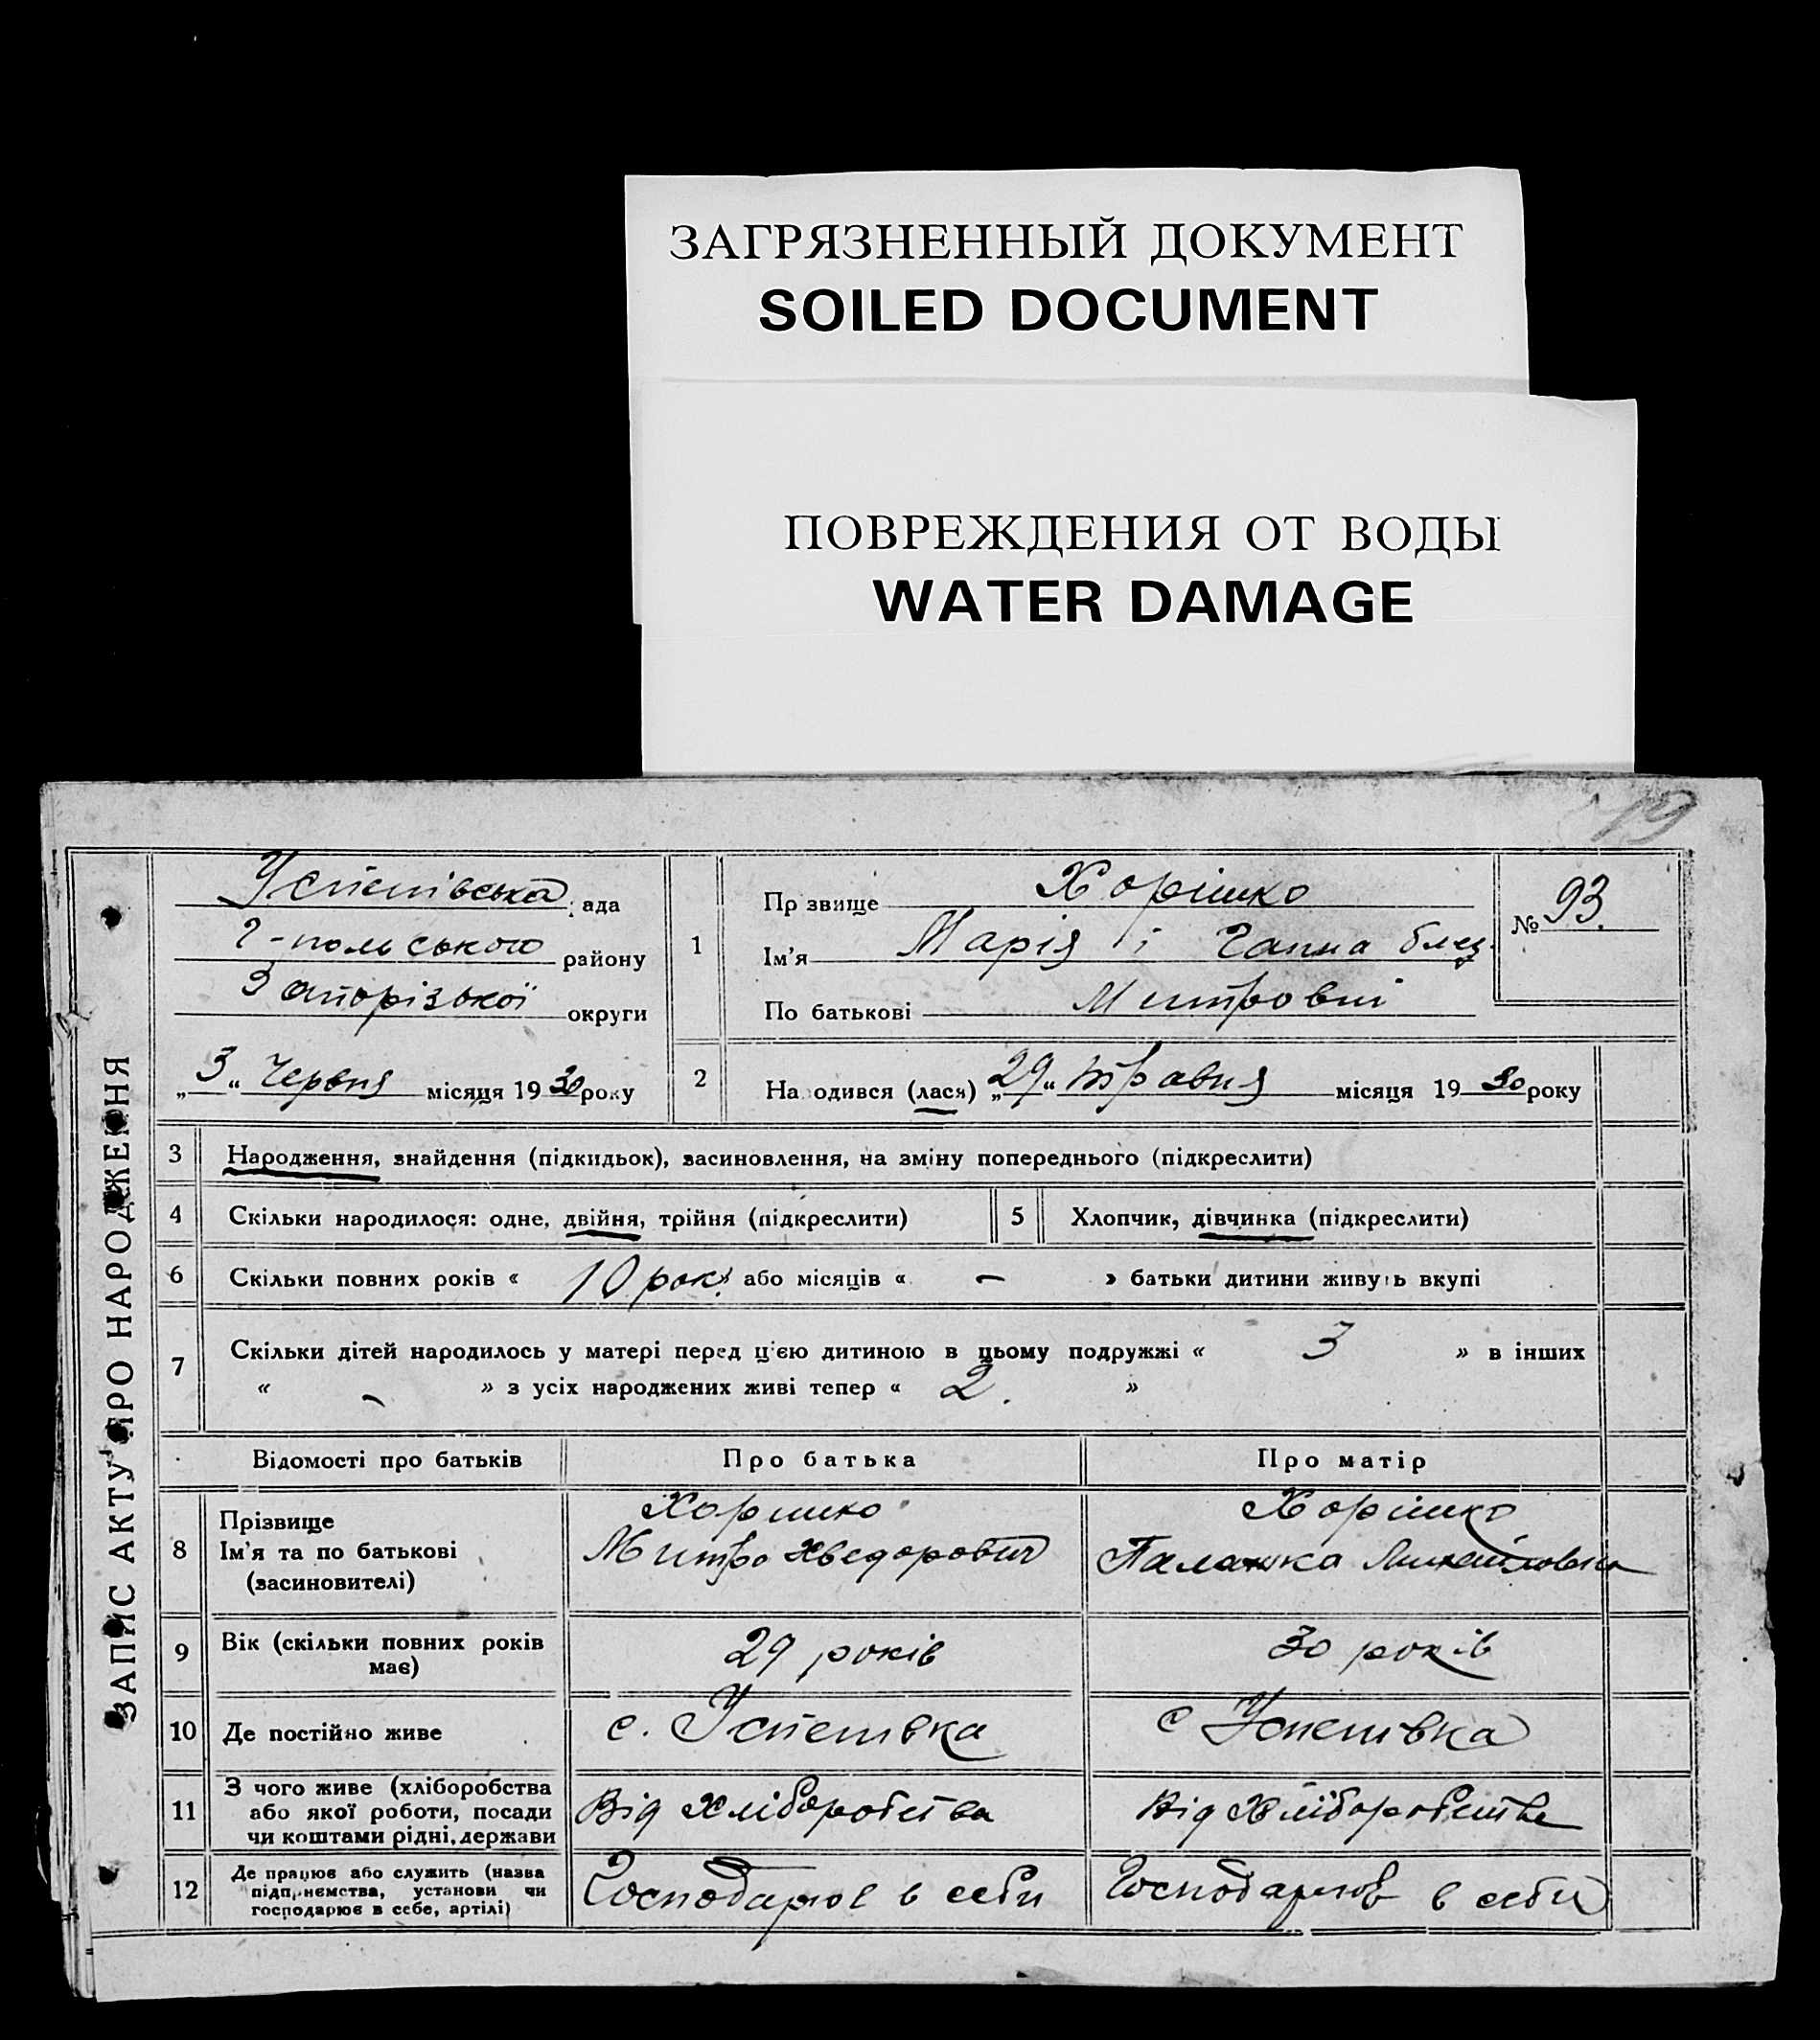 ЗАГРЯЗНЕННЫЙ ДОКУМЕНТ
SOILED DOCUMENT
ПОВРЕЖДЕНИЯ ОТ ВОДЫ
WATER DAMAGE
19
ЗАПИС АКТУ ПРО НАРОДЖЕННЯ
Успенівська ада
Г-польського району
Запорізької округи
„3“ Червня місяця 1930 року
1
Пр звище Хорішко
Ім'я Марія і Ганна близ.
По батькові Митровні
№ 93.
2
На одився (лася) „29“ травня місяця 1930 року
3 Народження, знайдення (підкидьок), засиновлення, на зміну попереднього (підкреслити)
4 Скільки народилося: одне, двійня, трійня (підкреслити)
5 Хлопчик, дівчинка (підкреслити)
6 Скільки повних років « 10 рок. або місяців « – » батьки дитини живуть вкупі
7 Скільки дітей народилось у матері перед ц'єю дитиною в цьому подружжі « 3 » в інших
« – » з усіх народжених живі тепер « 2. »
Відомості про батьків Про батька Про матір
8 Прізвище
Ім'я та по батькові
(засиновителі)
Хоришко
Митро Хведорович
Хорішко
Палажка
9 Вік (скільки повних років
має)
29 років
30 років
10 Де постійно живе
с. Успенівка
с Успенівка
11 З чого живе (хліборобства
або якої роботи, посади
чи коштами рідні, держави
Від Хліборобства
Від Хліборобства
12 Де працює або служить (назва
підприємства, установи чи
господарює в себе, артілі)
Господарює в себи
Господарює в себи